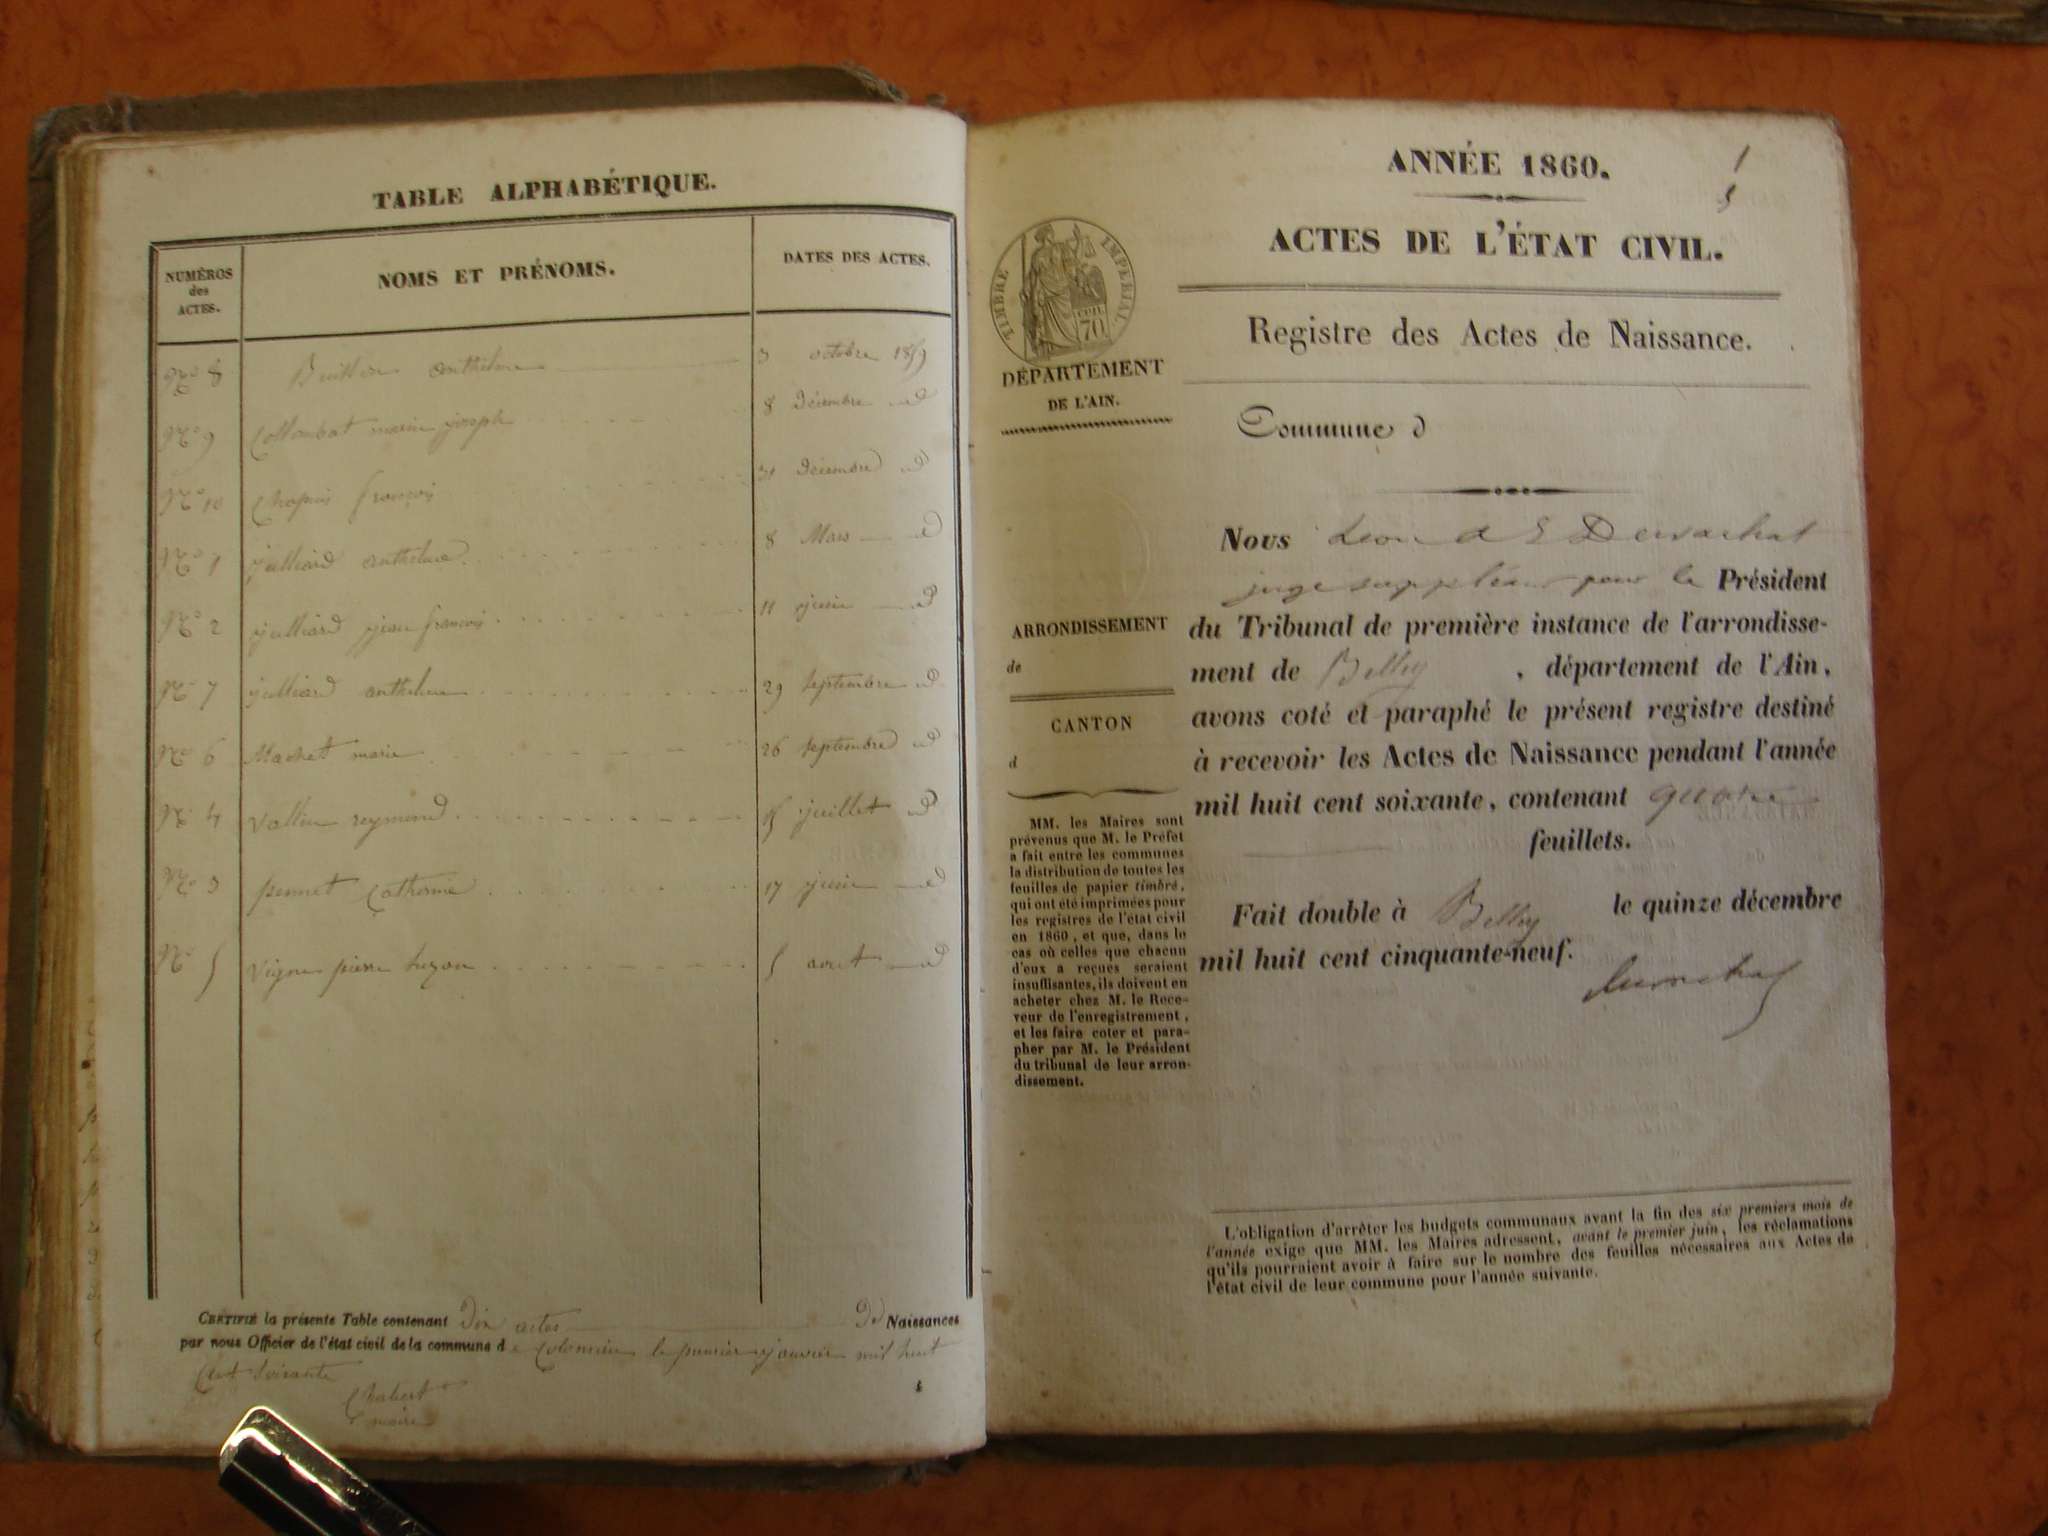 TABLE ALPHABÉTIQUE.
NUMÉROS des ACTES. NOMS ET PRÉNOMS. DATES DES ACTES.
No 8 anthelme 3 octobre 1859
No 9 Collombat marie joseph 8 Décembre id
No 10 Chapuis françois 31 Décembre id
No 1 julliard anthelme 8 Mars id
No 2 julliard jean françois 11 juin id
No 7 julliard anthelme 29 septembre id
No 6 Machet marie 26 septembre id
No 4 Vallin reymond 15 juillet id
No 3 pennet Catherine 17 juin id
No 5 Vigne pierre 5 aout id
CERTIFIÉ la présente Table contenant Dix actes De Naissances
par nous Officier de l'état civil de la commune de le premier janvier mil huit
Cent soixante
Chabert
maire
1
ANNÉE 1860.
ACTES DE L'ÉTAT CIVIL.
TIMBRE IMPÉRIAL
70
DÉPARTEMENT
DE L'AIN.
Registre des Actes de Naissance.
Commune d
ARRONDISSEMENT
de
CANTON
d
MM. les Maires sont
prévenus que M. le Préfet
a fait entre les communes
la distribution de toutes les
feuilles de papier timbré,
qui ont été imprimées pour
les registres de l'état civil
en 1860, et que, dans le
cas où celles que chacun
d'eux a reçues seraient
insuffisantes, ils doivent en
acheter chez M. le Rece-
veur de l'enregistrement,
et les faire coter et para-
pher par M. le Président
du tribunal de leur arron-
dissement.
Nous Leon
juge suppléant pour le Président
du Tribunal de première instance de l'arrondisse-
ment de Belley, département de l'Ain,
avons coté et paraphé le présent registre destiné
à recevoir les Actes de Naissance pendant l'année
mil huit cent soixante, contenant quatre
feuillets.
Fait double à Belley le quinze décembre
mil huit cent cinquante-neuf.
L'obligation d'arrêter les budgets communaux avant la fin des six premiers mois de
l'année exige que MM. les Maires adressent, avant le premier juin, les réclamations
qu'ils pourraient avoir à faire sur le nombre des feuilles nécessaires aux Actes de
l'état civil de leur commune pour l'année suivante.